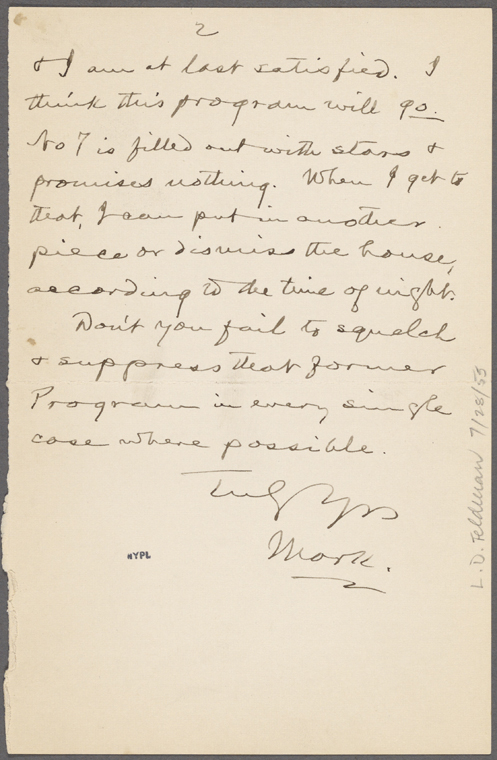 2
& I am at last satisfied. I
think this program will go.
No 7 is filled out with stars &
promises nothing. When I get to
that, I can put in another
piece or dismiss the house,
according to the time of night.
Don't you fail to squelch
& suppress that former
Program in every single
case where possible.
Truly Yrs
Mark.
NYPL
L. D. Feldman 7/28/53